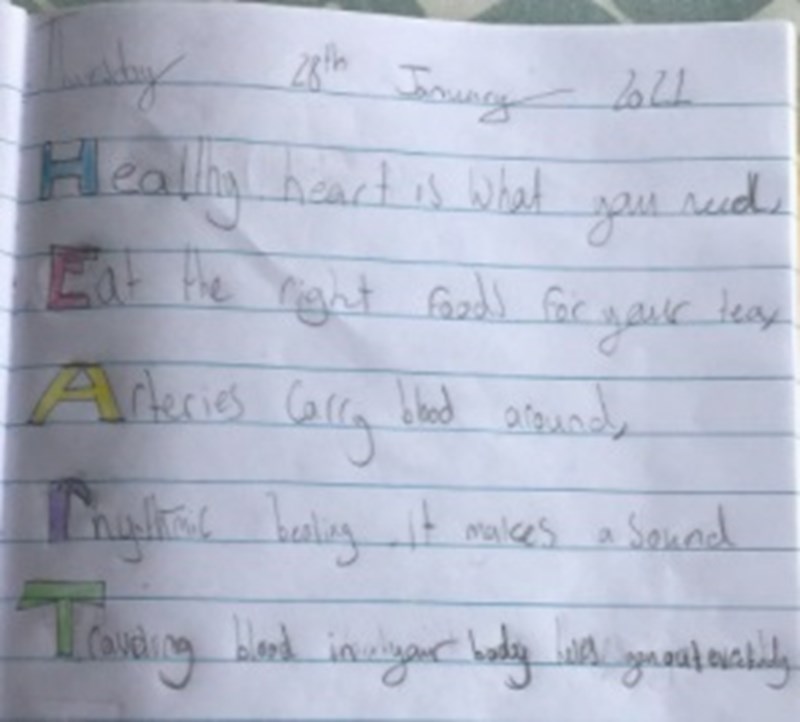 28th January 2021
Healthy heart is what you need,
Eat the right foods for your tea,
Arteries carry blood around,
rhythmic beating. It makes a sound
Traveling blood in your body